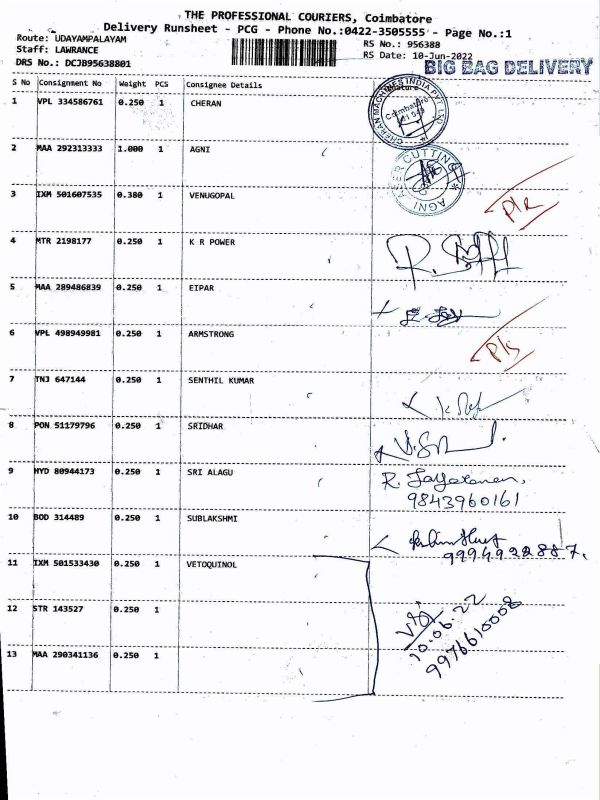 THE PROFESSIONAL COURIERS, Coimbatore
Delivery Runsheet - PCG - Phone No.:0422-3505555 - Page No.:1
Route: UDAYAMPALAYAM
RS No.: 956388
Staff: LAWRANCE
RS Date: 10-Jun-2022
DRS No.: DCJB95638801
BIG BAG DELIVERY
S No Consignment No Weight PCS Consignee Details
1 VPL 334586761 0.250 1 CHERAN
CHERAN MACHINES INDIA PVT LTD
Coimbatore
2 MAA 292313333 1.000 1 AGNI
AGNI CUTTING
3 IXM 501607535 0.380 1 VENUGOPAL
4 MTR 2198177 0.250 1 K R POWER
5 MAA 289486839 0.250 1 EIPAR
6 VPL 498949981 0.250 1 ARMSTRONG
7 TNJ 647144 0.250 1 SENTHIL KUMAR
8 PON 51179796 0.250 1 SRIDHAR
9 HYD 80944173 0.250 1 SRI ALAGU
9843960161
10 BOD 314489 0.250 1 SUBLAKSHMI
9994922887.
11 IXM 501533430 0.250 1 VETOQUINOL
12 STR 143527 0.250 1
10.06.22
9976610008
13 MAA 290341136 0.250 1